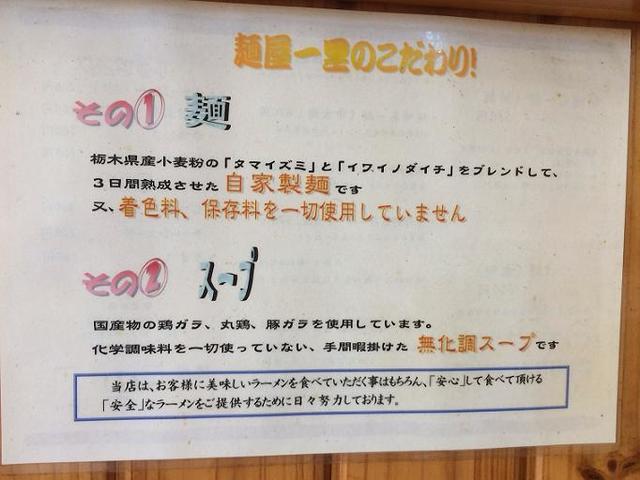 麺屋一里のこだわり!
その① 麺
栃木県産小麦粉の「タマイズミ」と「イワイノダイチ」をブレンドして、
３日間熟成させた 自家製麺です
又、着色料、保存料を一切使用していません
その② スープ
国産物の鶏ガラ、丸鶏、豚ガラを使用しています。
化学調味料を一切使っていない、手間暇掛けた 無化調スープです
当店は、お客様に美味しいラーメンを食べていただく事はもちろん、「安心」して食べて頂ける
「安全」なラーメンをご提供するために日々努力しております。